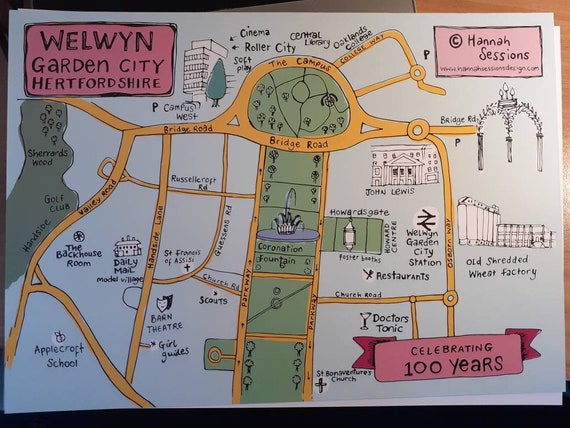 WELWYN
GARDEN CITY
HERTFORDSHIRE
Cinema
Roller City
Soft
play
Central
Library
Oaklands
College
COLLEGE WAY
P
© Hannah
Sessions
www.hannahsessionsdesign.com
The CAMPUS
P
Campus
West
Bridge Road
Bridge Road
Bridge Rd
P
Sherrards
Wood
Golf
CLUB
Valley Road
Handside
Russellcroft
Rd
JOHN LEWIS
Handside Lane
Guessens Rd
Howardsgate
HOWARD
CENTRE
Foster booths
Welwyn
Garden
City
Station
OSBORN WAY
Old Shredded
Wheat Factory
The
Backhouse
Room
DAILY
MAIL
model village
St Francis
of ASSisi
Coronation
Fountain
Restaurants
Church Rd
Scouts
PARKWAY
PARKWAY
Church Road
BARN
THEATRE
Doctors
Tonic
Girl
guides
Applecroft
School
St Bonaventure's
Church
CELEBRATING
100 YEARS